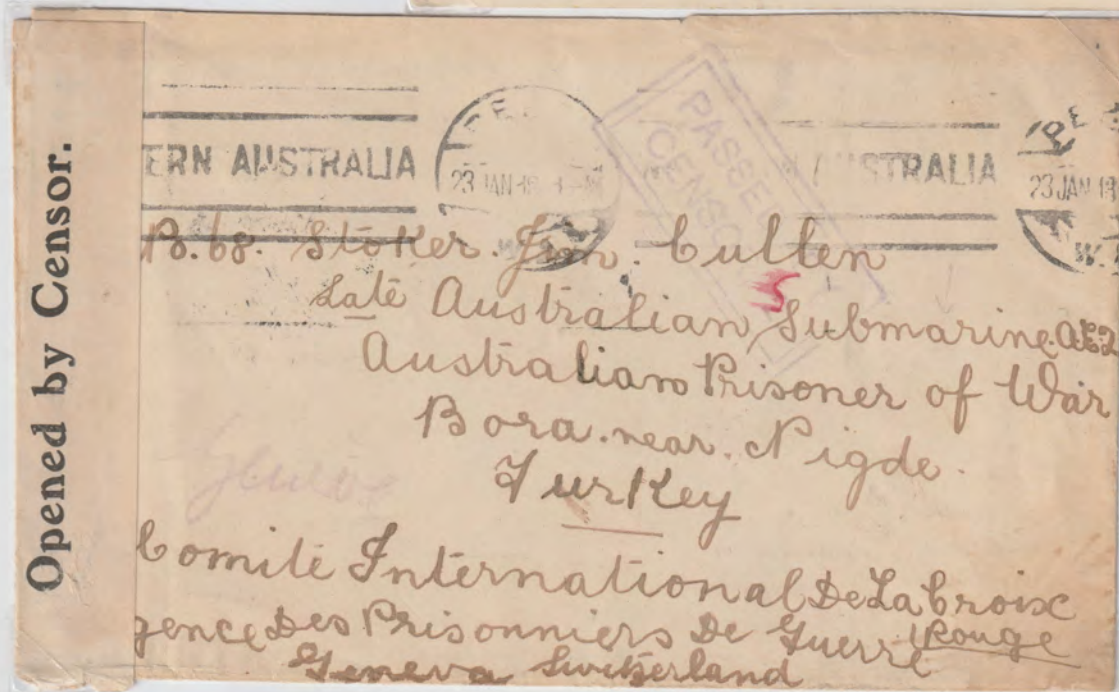 Opened by Censor.
ERN AUSTRALIA
PE
23 JAN 18
W.
PASSED
CENSOR
AUSTRALIA
PE
23 JAN 18
W.
B. 68. Stoker. Jhn. Cullen
Late Australian Submarine. AE2
Australian Prisoner of War
Bora. near. Nigde.
Turkey
Geneva
Comité International De La Croix
Rouge
gence Des Prisonniers De Guerre
Geneva Switzerland